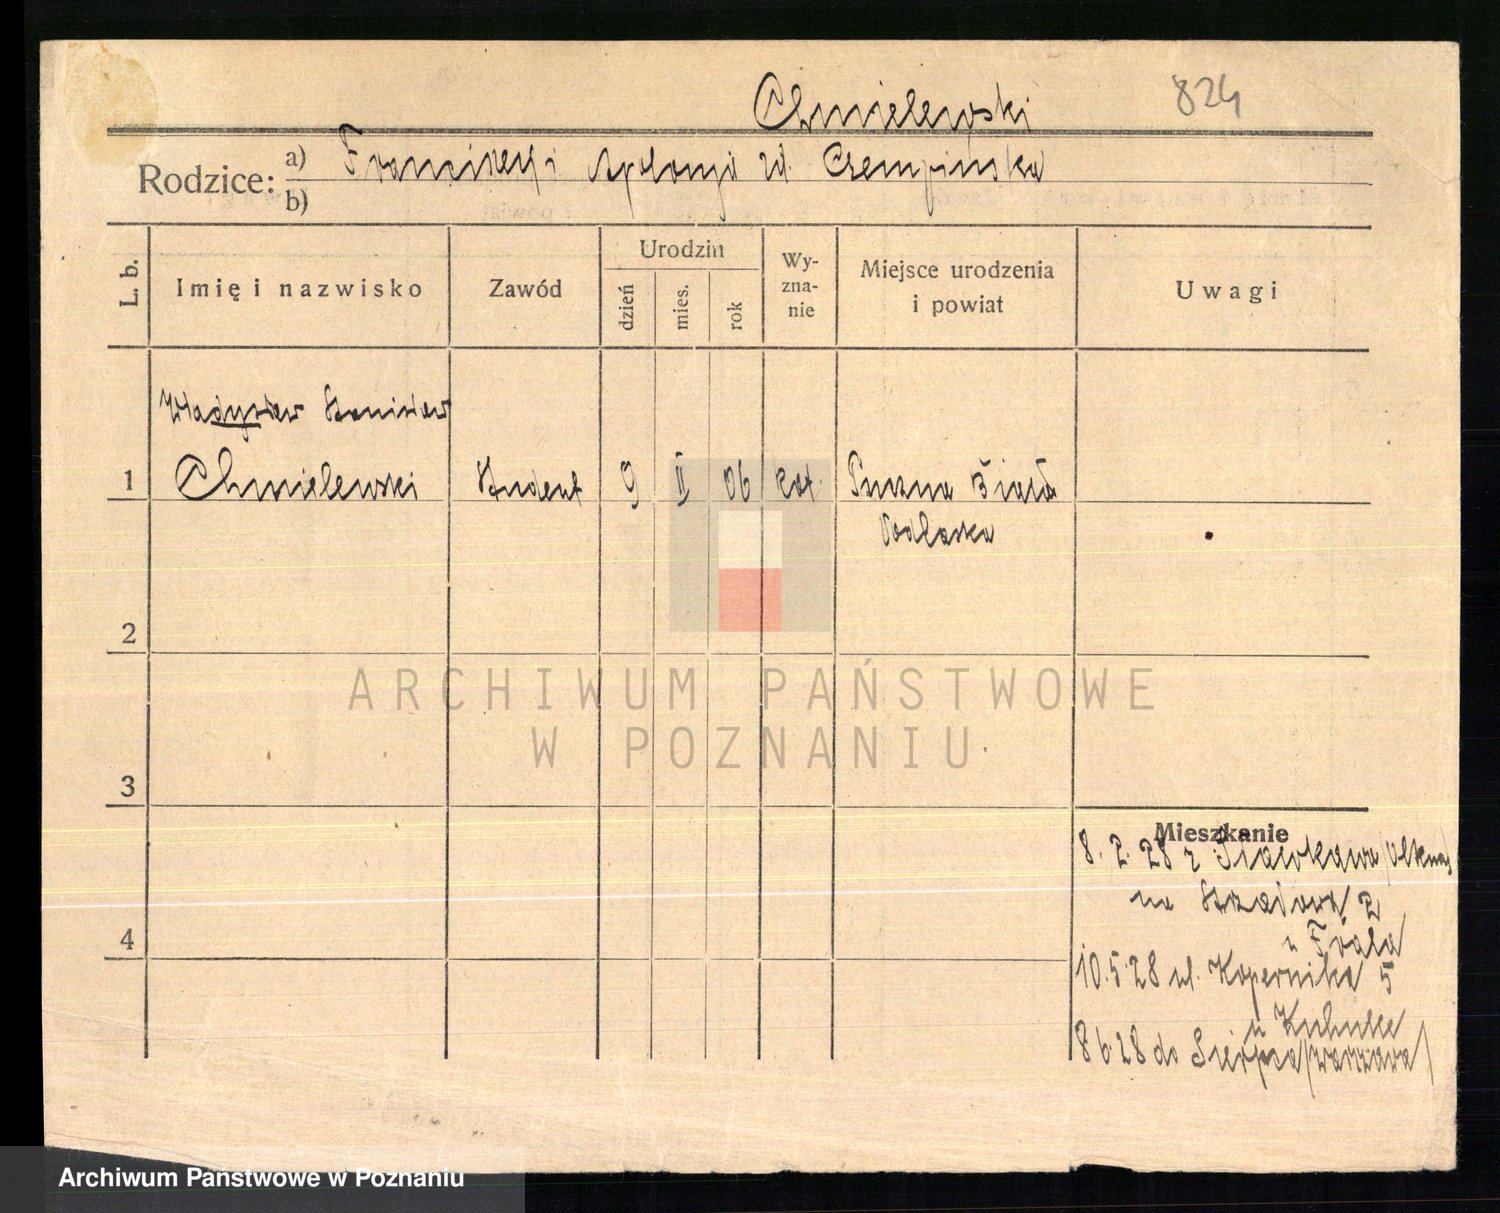 Chmielewski
824
Rodzice:
a) Franciszek i Apolonja zd. Czempińska
b)
L. b.
Imię i nazwisko
Zawód
Urodzin
dzień
mies.
rok
Wy-
zna-
nie
Miejsce urodzenia
i powiat
Uwagi
Władysław Stanisław
1
Chmielewski Student 9 II 06 kat. Biała
Podlaska
2
ARCHIWUM PAŃSTWOWE
W POZNANIU
3
Mieszkanie
8. 2. 28 z
na 2
4
u
10.5.28 ul. Kopernika 5
u
8 6 28 do Sierpca /Warszawa/
Archiwum Państwowe w Poznaniu